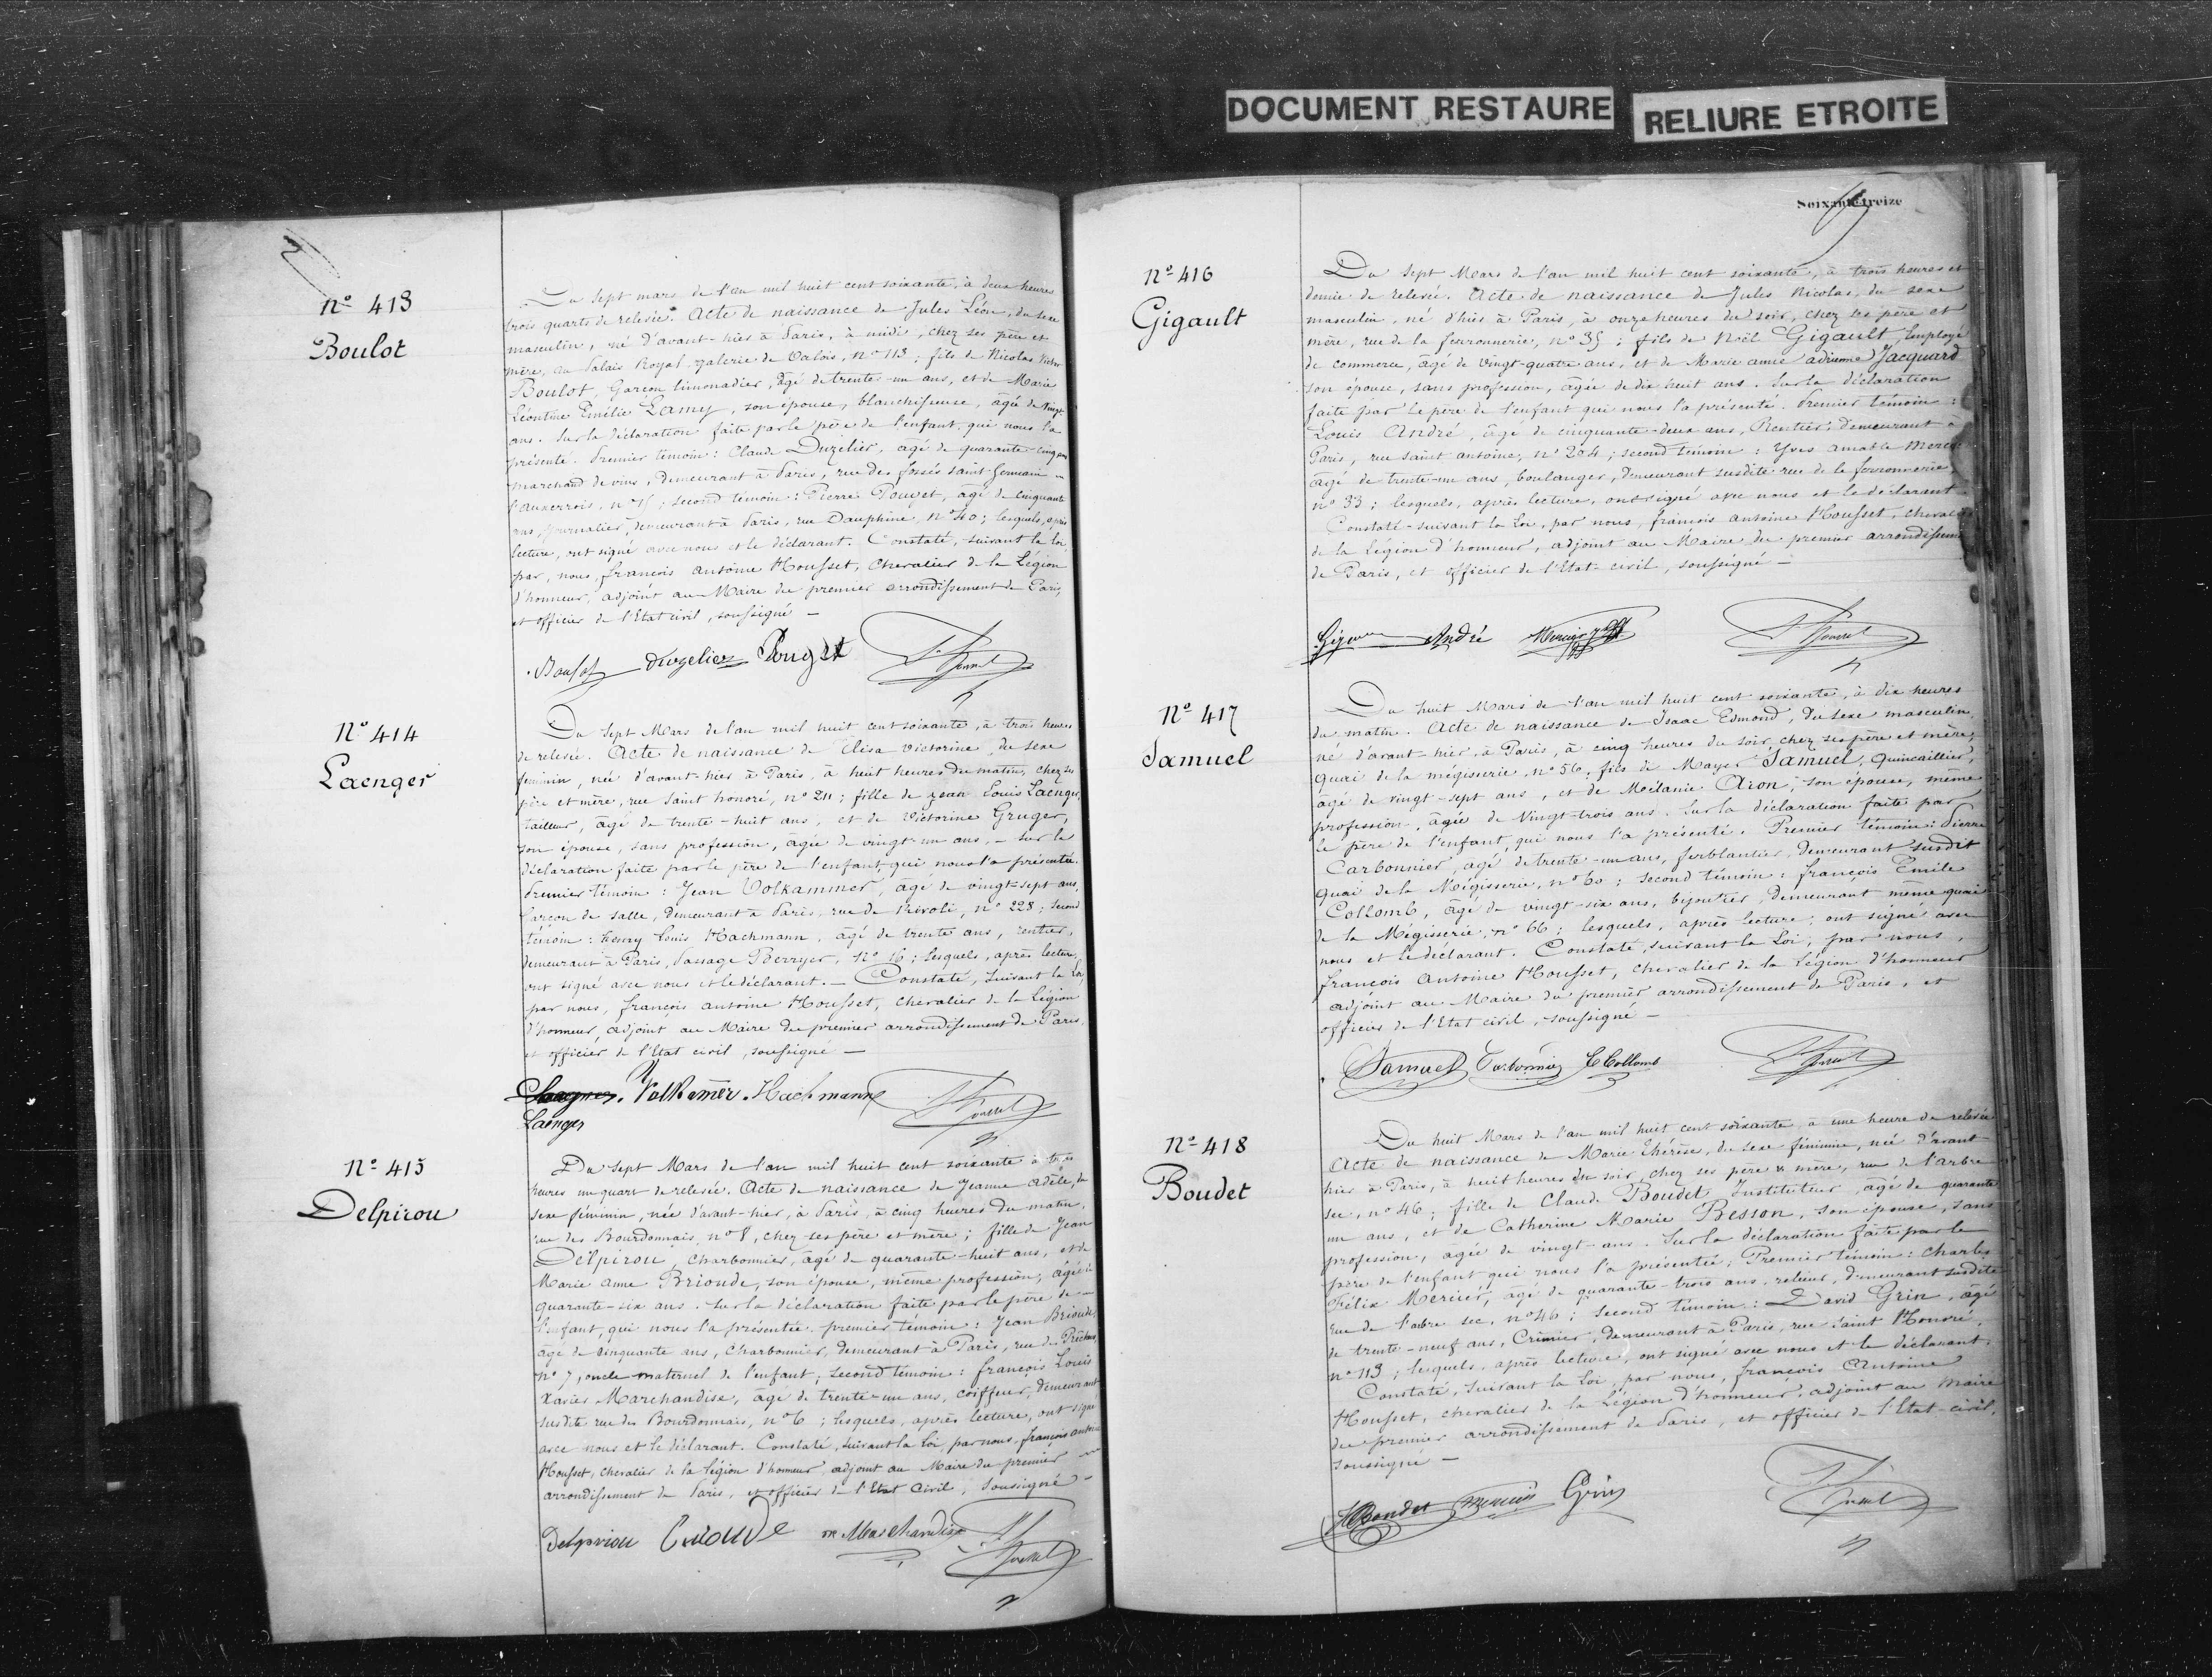 DOCUMENT RESTAURE
RELIURE ETROITE
Nº 413
Boulot
Du sept mars de l'an mil huit cent soixante, à deux heures
trois quarts de relevée. Acte de naissance de Jules Léon, du sexe
masculin, né d'avant-hier à Paris, à midi, chez ses père et
mère, au Palais Royal, galerie de Valois, nº 113; fils de Nicolas Victor
Boulot, Garçon limonadier, âgé de trente-un ans, et de Marie
Léontine Emilie Lamy, son épouse, blanchisseuse, âgée de vingt
ans. Sur la déclaration faite par le père de l'enfant, qui nous l'a
présenté. Premier témoin: Claude Duzelier, âgé de quarante cinq ans
marchand de vins, demeurant à Paris, rue des fossés Saint Germain
l'auxerrois, nº 15; second témoin: Pierre Pouget, âgé de cinquante
ans, Journalier, demeurant à Paris, rue Dauphine, nº 40; lesquels, après
lecture, ont signé avec nous et le déclarant. Constaté, suivant la loi,
par, nous, françois antoine Housset, Chevalier de la Légion
d'honneur, adjoint au Maire du premier arrondissement de Paris,
et officier de l'Etat civil, soussigné —
Boulot Duzelier Pouget Housset
Nº 414
Laenger
Du Sept Mars de l'an mil huit cent soixante, à trois heures
de relevée. Acte de naissance de Elisa Victorine, du sexe
féminin, née d'avant-hier à Paris, à huit heures du matin, chez ses
père et mère, rue Saint honoré, nº 211; fille de Jean Louis Laenger,
tailleur, âgé de trente-huit ans, et de Victorine Gruger,
son épouse, sans profession, âgée de vingt-un ans, — sur la
déclaration faite par le père de l'enfant, qui nous l'a présentée.
Premier témoin: Jean Volkammer, âgé de vingt-sept ans,
Garçon de salle, demeurant à Paris, rue de Rivoli, nº 228; Second
témoin: henry Louis Hachmann, âgé de trente ans, rentier,
demeurant à Paris, Passage Berryer, nº 16; lesquels, après lecture,
ont signé avec nous et le déclarant. — Constaté, suivant la Loi,
par nous, françois antoine Housset, chevalier de la Légion
d'honneur, adjoint au Maire du premier arrondissement de Paris,
et officier de l'Etat civil, soussigné —
Volkamer. Hachmann Housset
Laenger
Nº 415
Delpirou
Du Sept Mars de l'an mil huit cent soixante à trois
heures un quart de relevée. Acte de naissance de Jeanne Adèle, du
sexe féminin, née d'avant-hier, à Paris, à cinq heures du matin,
rue des Bourdonnais, nº 8, chez ses père et mère; fille de Jean
Delpirou, charbonnier, âgé de quarante-huit ans, et de
Marie anne Brioude, son épouse, même profession, âgée de
quarante-six ans. Sur la déclaration faite par le père de
l'enfant, qui nous l'a présentée. premier témoin: Jean Brioude,
âgé de cinquante ans, Charbonnier, demeurant à Paris, rue des Prêcheurs,
nº 7, oncle maternel de l'enfant; second témoin: françois Louis
Xavier Marchandise, âgé de trente-un ans, coiffeur, demeurant
susdite rue des Bourdonnais, nº 6; lesquels, après lecture, ont signé
avec nous et le déclarant. Constaté, suivant la loi, par nous, françois antoine
Housset, chevalier de la légion d'honneur, adjoint au Maire du premier
arrondissement de Paris, et officier de l'Etat civil, soussigné —
Delpirou Brioude Marchandise Housset
Soixante-treize
Nº 416
Gigault
Du Sept Mars de l'an mil huit cent soixante, à trois heures et
demie de relevée. Acte de naissance de Jules Nicolas, du sexe
masculin, né d'hier à Paris, à onze heures du soir, chez ses père et
mère, rue de la ferronnerie, nº 35; fils de Noël Gigault, Employé
de commerce, âgé de vingt-quatre ans, et de Marie anne adrienne Jacquard
son épouse, sans profession, âgée de dix huit ans. Sur la déclaration
faite par le père de l'enfant qui nous l'a présenté. Premier témoin:
Louis André, âgé de cinquante-deux ans, Rentier demeurant à
Paris, rue saint antoine, nº 204; second témoin: Yves amable Mercier
âgé de trente-un ans, boulanger, demeurant susdite rue de la ferronnerie,
nº 33; lesquels, après lecture, ont signé avec nous et le déclarant.
Constaté suivant la Loi, par nous, françois antoine Housset, chevalier
de la Légion d'honneur, adjoint au Maire du premier arrondissement
de Paris, et officier de l'Etat-civil, soussigné —
André Mercier Housset
Nº 417
Samuel
Du huit Mars de l'an mil huit cent soixante, à dix heures
du matin. Acte de naissance de Isaac Edmond, du sexe masculin,
né d'avant-hier, à Paris, à cinq heures du soir, chez ses père et mère,
quai de la mégisserie, nº 56, fils de Mayer Samuel, Quincaillier,
âgé de vingt-sept ans, et de Mélanie Aron, son épouse, même
profession, âgée de Vingt-trois ans. Sur la déclaration faite par
le père de l'enfant, qui nous l'a présenté. Premier témoin: Pierre
Carbonnier, âgé de trente-un ans, ferblantier, demeurant susdit
Quai de la Mégisserie, nº 60; second témoin: françois Emile
Collomb, âgé de vingt-six ans, bijoutier, demeurant même quai
de la Mégisserie, nº 66; lesquels, après lecture, ont signé avec
nous et le déclarant. Constaté, suivant la Loi, par nous,
françois Antoine Housset, chevalier de la légion d'honneur
adjoint au Maire du premier arrondissement de Paris, et
officier de l'Etat civil, soussigné —
Samuel Carbonnier E Collomb Housset
Nº 418
Boudet
Du huit Mars de l'an mil huit cent soixante, à une heure de relevée
Acte de naissance de Marie Thérèse, du sexe féminin, née d'avant-
hier à Paris, à huit heures du soir, chez ses père & mère, rue de l'arbre
sec, nº 46; fille de Claude Boudet, Instituteur, âgé de quarante
un ans, et de Catherine Marie Besson, son épouse, sans
profession, âgée de vingt-ans. Sur la déclaration faite par le
père de l'enfant qui nous l'a présentée; Premier témoin: Charles
Félix Mercier, âgé de quarante-trois ans, relieur, demeurant susdite
rue de l'arbre sec, nº 46; second témoin: David Grin, âgé
de trente-neuf ans, Crémier, demeurant à Paris, rue Saint Honoré,
nº 113; lesquels, après lecture, ont signé avec nous et le déclarant,
Constaté, suivant la Loi, par nous, françois Antoine
Housset, chevalier de la Légion d'honneur, adjoint au Maire
du premier arrondissement de Paris, et officier de l'Etat-civil,
soussigné —
Boudet Mercier Grin Housset